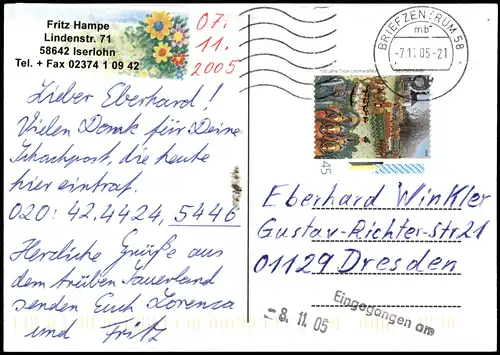 Fritz Hampe
Lindenstr. 71
58642 Iserlohn
Tel. + Fax 02374 1 09 42
07.
11.
2005
Lieber Eberhard!
Vielen Dank für Deine
Schachpost, die heute
hier eintraf.
020: 42.4424, 5446
Herzliche Grüße aus
dem trüben Sauerland
senden Euch Lorenza
und Fritz
BRIEFZENTRUM 58
mb
-7.11.05-21
45
Eberhard Winkler
Gustav-Richter-Str 21
01129 Dresden
Eingegangen am
- 8. 11. 05